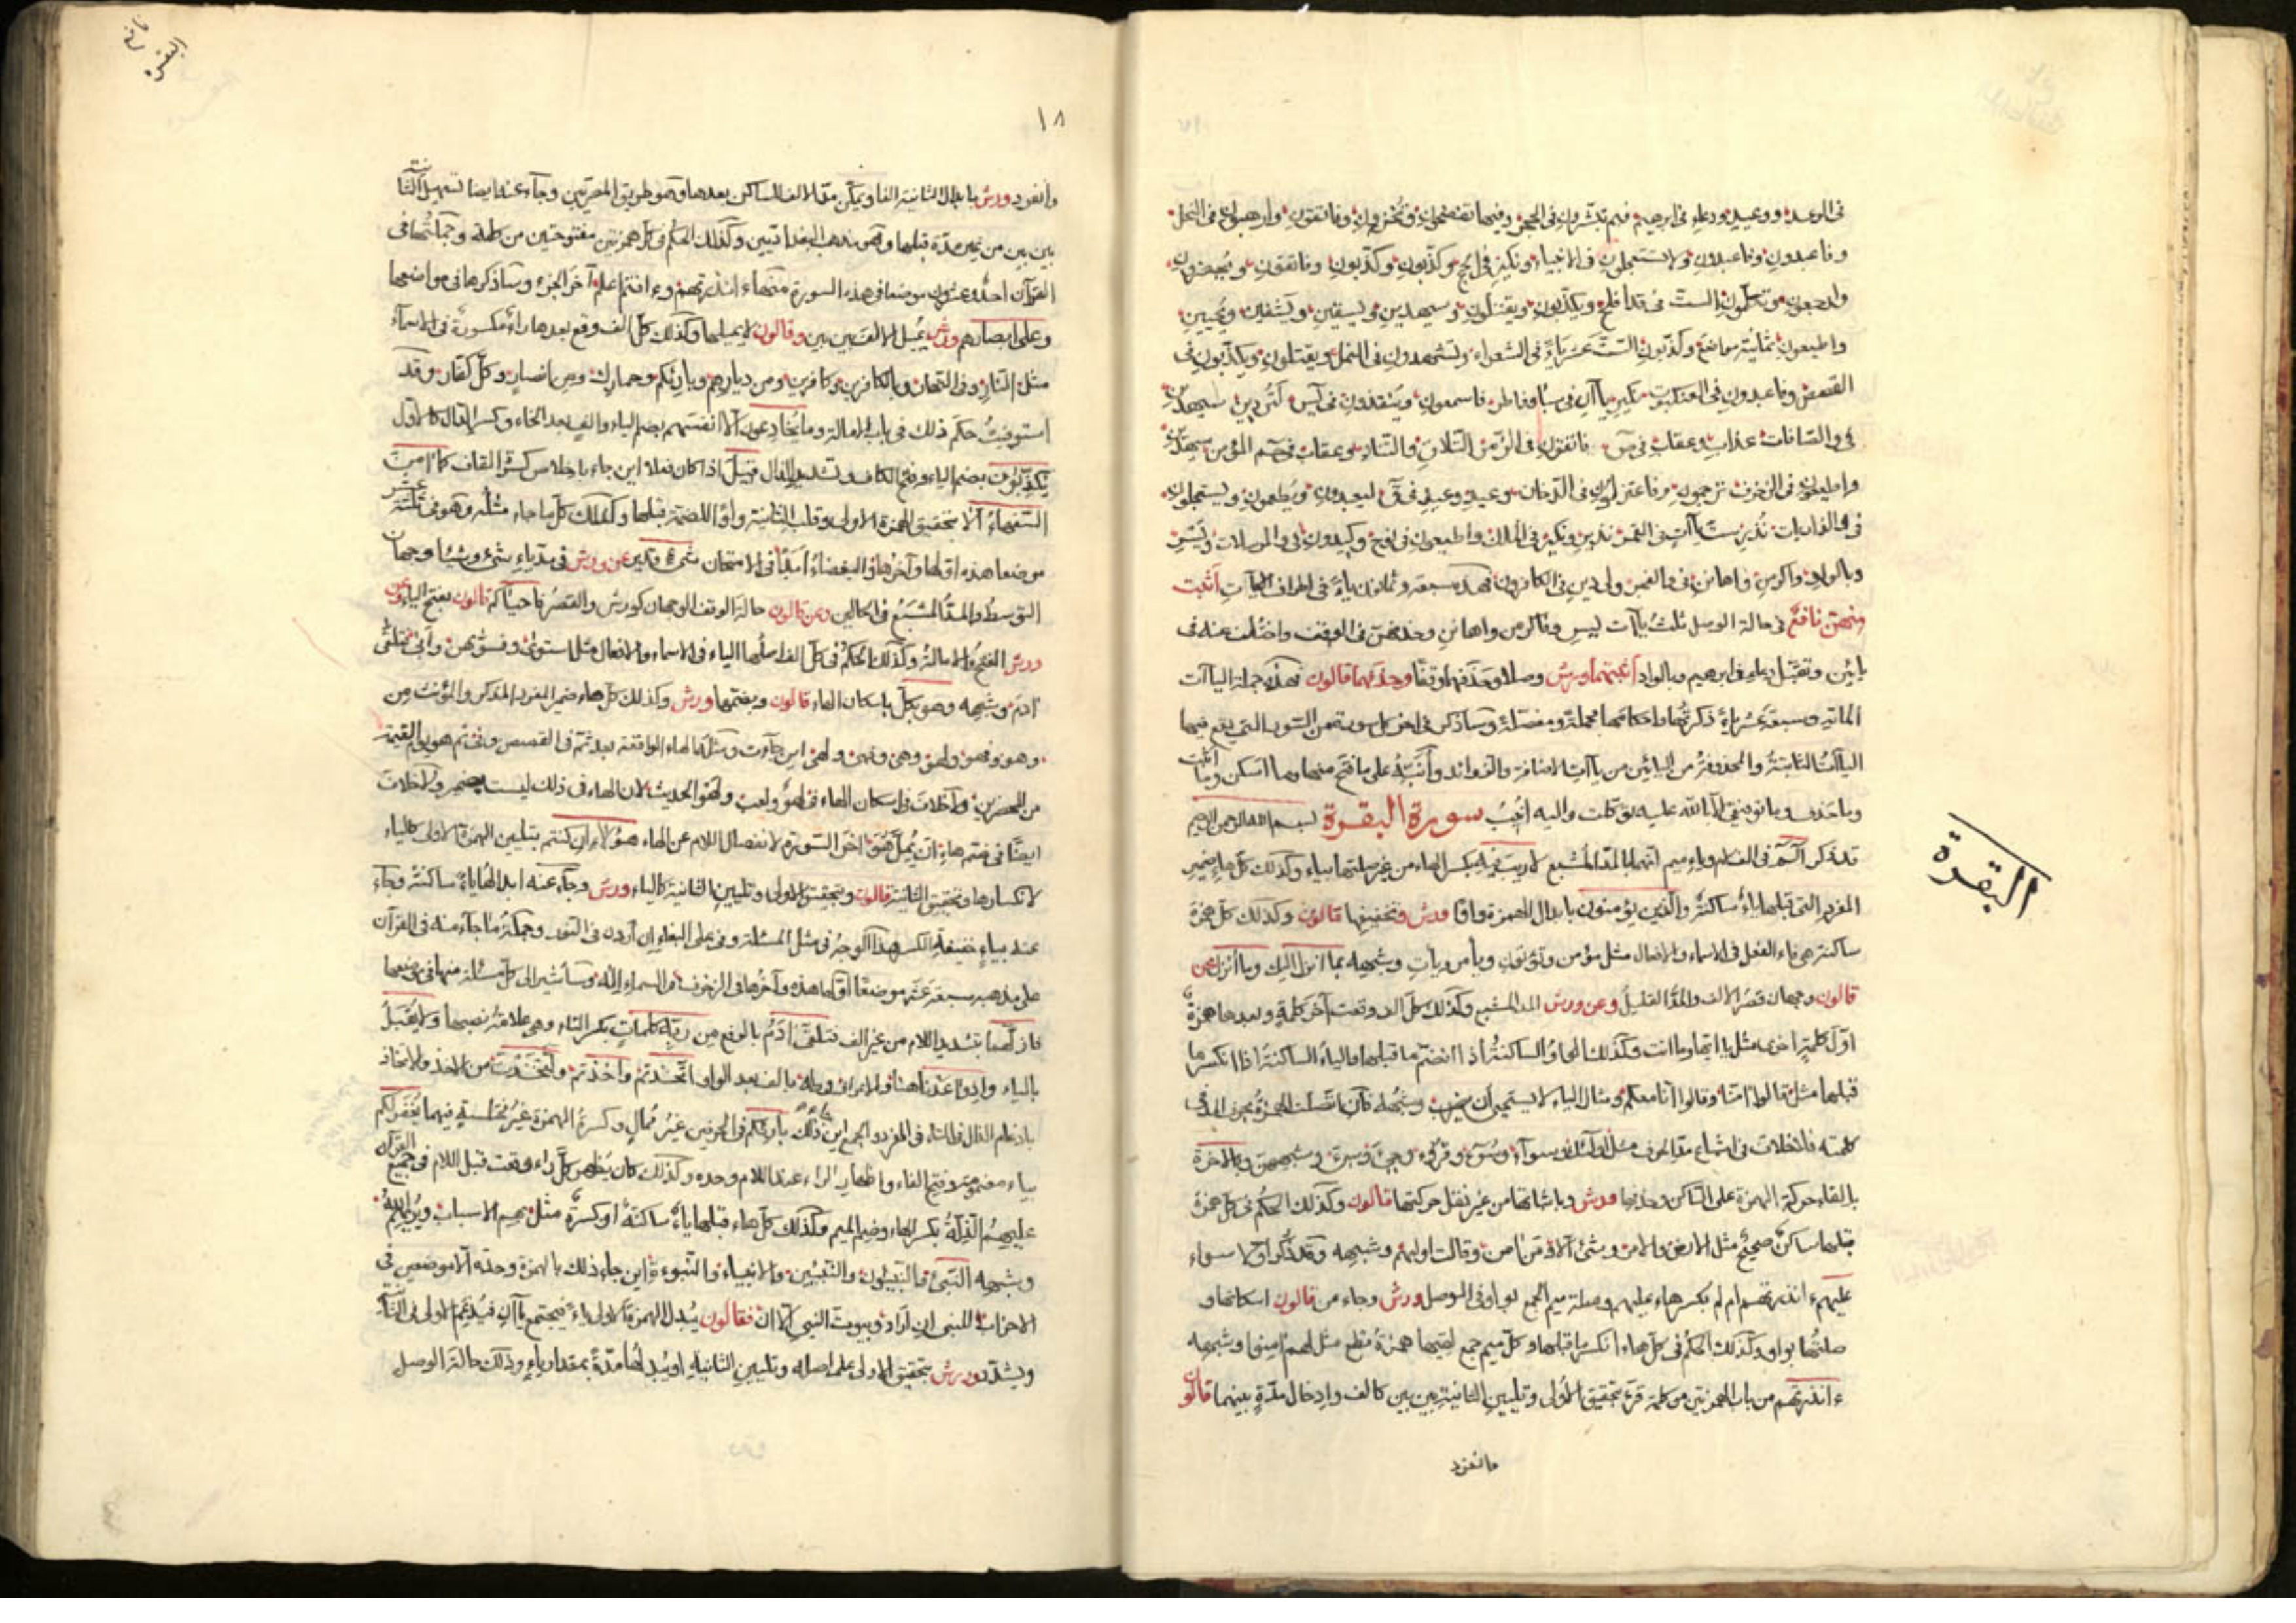 في الرعد ووعيد ودعاء في ابرهيم فبم تبشرون في الحجر وفيها تفضحون وتخزون وفاتقون وارهبون في النحل
وفاعبدون وفاعبدون ولا تستعجلون في الانبياء ونكير في الحج وكذبون وكذبون وفاتقون ويحضرون
وارجعون وتكلمون الست في قد افلح ويكذبون ويقتلون وسيهدين ويسقين ويشفين ويحيين
واطيعون ثمانية مواضع وكذبون الست عشرة ياءً في الشعراء وتشهدون في النمل ويقتلون ويكذبون في
القصص وفاعبدون في العنكبوت نكير ياآن في سبأ وفاطر فاسمعون وينقذون في يس لتردين سيهدين
في والصافات عذاب وعقاب في ص فاتقون في الزمر التلاق والتناد وعقاب في حم المؤمن سيهدين
واطيعون في الزخرف ترجمون وفاعتزلون في الدخان وعيد وعيد في ق ليعبدون ويطعمون ويستعجلون
في والذاريات نُذر ست ياآت في القمر نذير ونكير في الملك واطيعون في نوح وكيدون في والمرسلات ويسر
وبالواد واكرمن واهانن في والفجر ولي دين في الكافرون فهذه سبعة وثمانون ياءً في اطراف الآيات اثبت
منهن نافع في حالة الوصل ثلث ياآت يسر واكرمن واهانن وحذفهن في الوقف واختلف عنه في
يائين وتقبل دعاء في ابرهيم وبالواد اثبتهما ورش وصلا وحذفهما وقفا وحذفهما قالون فهذه جملة الياآت
المأتين وسبعة عشر ياءً ذكرتها واحكامها مجملة ومفصلة وساذكر في اخر كل سورة من السور التي يقع فيها
الياآت الثابتة والمحذوفة من اليائين من ياآت الاضافة والزوائد وانبّه على ما فتح منها وما اسكن وما اثبت
وما حذف وما توفيقي الا بالله عليه توكلت واليه انيب سورة البقرة بسم الله الرحمن الرحيم
قد ذكر الم في الف لام وياء ميم انهما بالمد المشبع لا ريب فيه بكسر الهاء من غير صلتها بياء وكذلك كل هاء ضمير
المفرد التي قبلها ياء ساكنة والذين يؤمنون بابدال الهمزة واوًا ورش وتخفيفها قالون وكذلك كل همزة
ساكنة هي فاء الفعل في الاسماء والافعال مثل مؤمن وتؤتون ويأمر ويأت وشبهه بما انزل اليك وما انزل عن
قالون وجهان قصر الالف والمد القليل وعن ورش المد المشبع وكذلك كل الف وقعت آخر كلمة وبعدها همزة
اول كلمة اخرى مثل يا ايها وما انت وكذلك الواو الساكنة اذا انضم ما قبلها والياء الساكنة اذا انكسر ما
قبلها مثل قالوا امنا وقالوا انا معكم ومثال الياء لا يستحيي ان يضرب وشبهه فان اتصلت الهمزة بحرف المد في
كلمته فلا خلاف في اشباع مد الحرف مثل اولئك وسوآء وسوء وقروء وجيء وسيء وشبههن وبالاخرة
بالقاء حركة الهمزة على الساكن وحذفها ورش وباثباتها من غير نقل حركتها قالون وكذلك الحكم في كل همزة
قبلها ساكن صحيح مثل الارض والامر وشيء الا ومن امن وقالت اوليهم وشبهه وقد ذكر اولا سواء
عليهم ءانذرتهم ام لم بكسر هاء عليهم وصلة ميم الجمع بواو في الوصل ورش وجاء من قالون اسكانها و
صلتها بواو وكذلك الحكم في كل هاء انكسر ما قبلها وكل ميم جمع لقيتها همزة قطع مثل لهم امنوا وشبهه
ءانذرتهم من باب الهمزتين من كلمة قرء بتحقيق الاولى وتليين الثانية بين بين كالف وادخال مدة بينهما قالون
وانفرد
البقرة
١٨
وانفرد ورش بابدال الثانية الفا وتمكن مدّ الالف للساكن بعدها وهو طريق المصريين وجآء عنه ايضا تسهيل الثانية
بين بين من غير مدة قبلها وهو مذهب البغداديين وكذلك الحكم في كل همزتين مفتوحتين من كلمة وجملتها في
القرآن احد وعشرون موضعا في هذه السورة منها ءانذرتهم وءانتم اعلم آخر الجزء وساذكرها في مواضعها
وعلى ابصارهم ورش يُميل الالف بين بين وقالون لا يميلها وكذلك كل الف وقع بعدها راء مكسورة في الاسمآء
مثل النار وفي النهار وبالكافرين وكافرين ومن ديارهم وبارئكم وحمارك ومن انصار وكل كفار وقد
استوفيت حكم ذلك في باب الامالة وما يخادعون الا انفسهم بضم الياء والف بعد الخاء وكسر الدال كالاول
يكذّبون بضم الياء وفتح الكاف وتشديد الذال قيل اذا كان فعلا اين جاء باخلاص كسرة القاف كما امن
السفهاءُ ألا بتحقيق الهمزة الاولى وقلب الثانية واوًا للضمة قبلها وكذلك كل ما جاء مثله وهو في ثلثة عشر
موضعا هذه اولها وآخرها والبغضاءُ ابدًا في الامتحان شيء قدير عن ورش في مد ياء شيء وشيئا وجهان
التوسط والمد المشبع في الحالين وعن قالون حالة الوقف الوجهان كورش والقصر فاحياكم قالون بفتح الياء وعن
ورش الفتح والامالة وكذلك الحكم في كل الف اصلها الياء في الاسماء والافعال مثل استوى وفسوّيهن وأبى فتلقى
ادم وشبهه وهو بكل باسكان الهاء قالون وبضمها ورش وكذلك كل هاء ضمير المفرد المذكر والمؤنث من
وهو وفهو ولهو وهي وفهي ولهي اين جآءت ومثلها الهاء الواقعة بعد ثم في القصص وفي ثم هو يوم القيمة
من المحضرين ولا خلاف في اسكان الهاء في لهوٌ ولعب ولهو الحديث لان الهاء في ذلك ليست بضمير ولا خلاف
ايضًا في ضم هاء ان يُملّ هُوَ اخر السورة لانفصال اللام عن الهاء هؤلاءِ ان كنتم بتليين الهمزة الاولى كالياء
لانكسارها وتحقيق الثانية قالون وبتحقيق الاولى وتليين الثانية كالياء ورش وجآء عنه ابدالها ياءً ساكنة وجآء
عنه بياءٍ خفيفة الكسر هذا الوجه في مثل المسئلة وفي على البغاءِ ان اردن في النور وجملة ما جآء منه في القرآن
على مذهبه سبعة عشر موضعًا اولها هذه وآخرها في الزخرف في السماءِ اِلٰه وسأشير الى كل مسئلة منها في موضعها
فازلّهما بتشديد اللام من غير الف فتلقى ادمُ بالرفع من ربه كلماتٍ بكسر التاء وهي علامة نصبها ولا يُقبل
بالياء واذ واعدنا هنا والاعراف وطه بالف بعد الواو اتخذتم واخذتم ولتخذت من الاخذ والاتخاذ
بادغام الذال في التاء في المفرد والجمع اين جآء ذلك بارئكم في الحرفين غير ممالٍ وكسرة الهمزة غير مختلسة فيهما يُغفر لكم
بياء مضمومة وفتح الفاء واظهار الراء عند اللام وحده وكذلك كان يُظهر كل راء وقعت قبل اللام في جميع القرآن
عليهِمُ الذلّةُ بكسر الهاء وضم الميم وكذلك كل هاء قبلها ياءٌ ساكنةٌ او كسرةٌ مثل بهم الاسباب ويريهم الله
وشبهه النبيء والنبيئون والنبيئين والانبياء والنبوءة اين جاء ذلك بالهمزة وحده الا موضعين في
الاحزاب للنبي ان اراد وبيوت النبي الا ان فقالون يُبدل الهمزة الاولى ياءً فيجتمع ياآن فيُدغم الاولى في الثانية
ويشدّد ورش بتحقيق الاولى على اصله وتليين الثانية او يُبدلها مدّةً بمقدار ياءٍ وذلك حالة الوصل